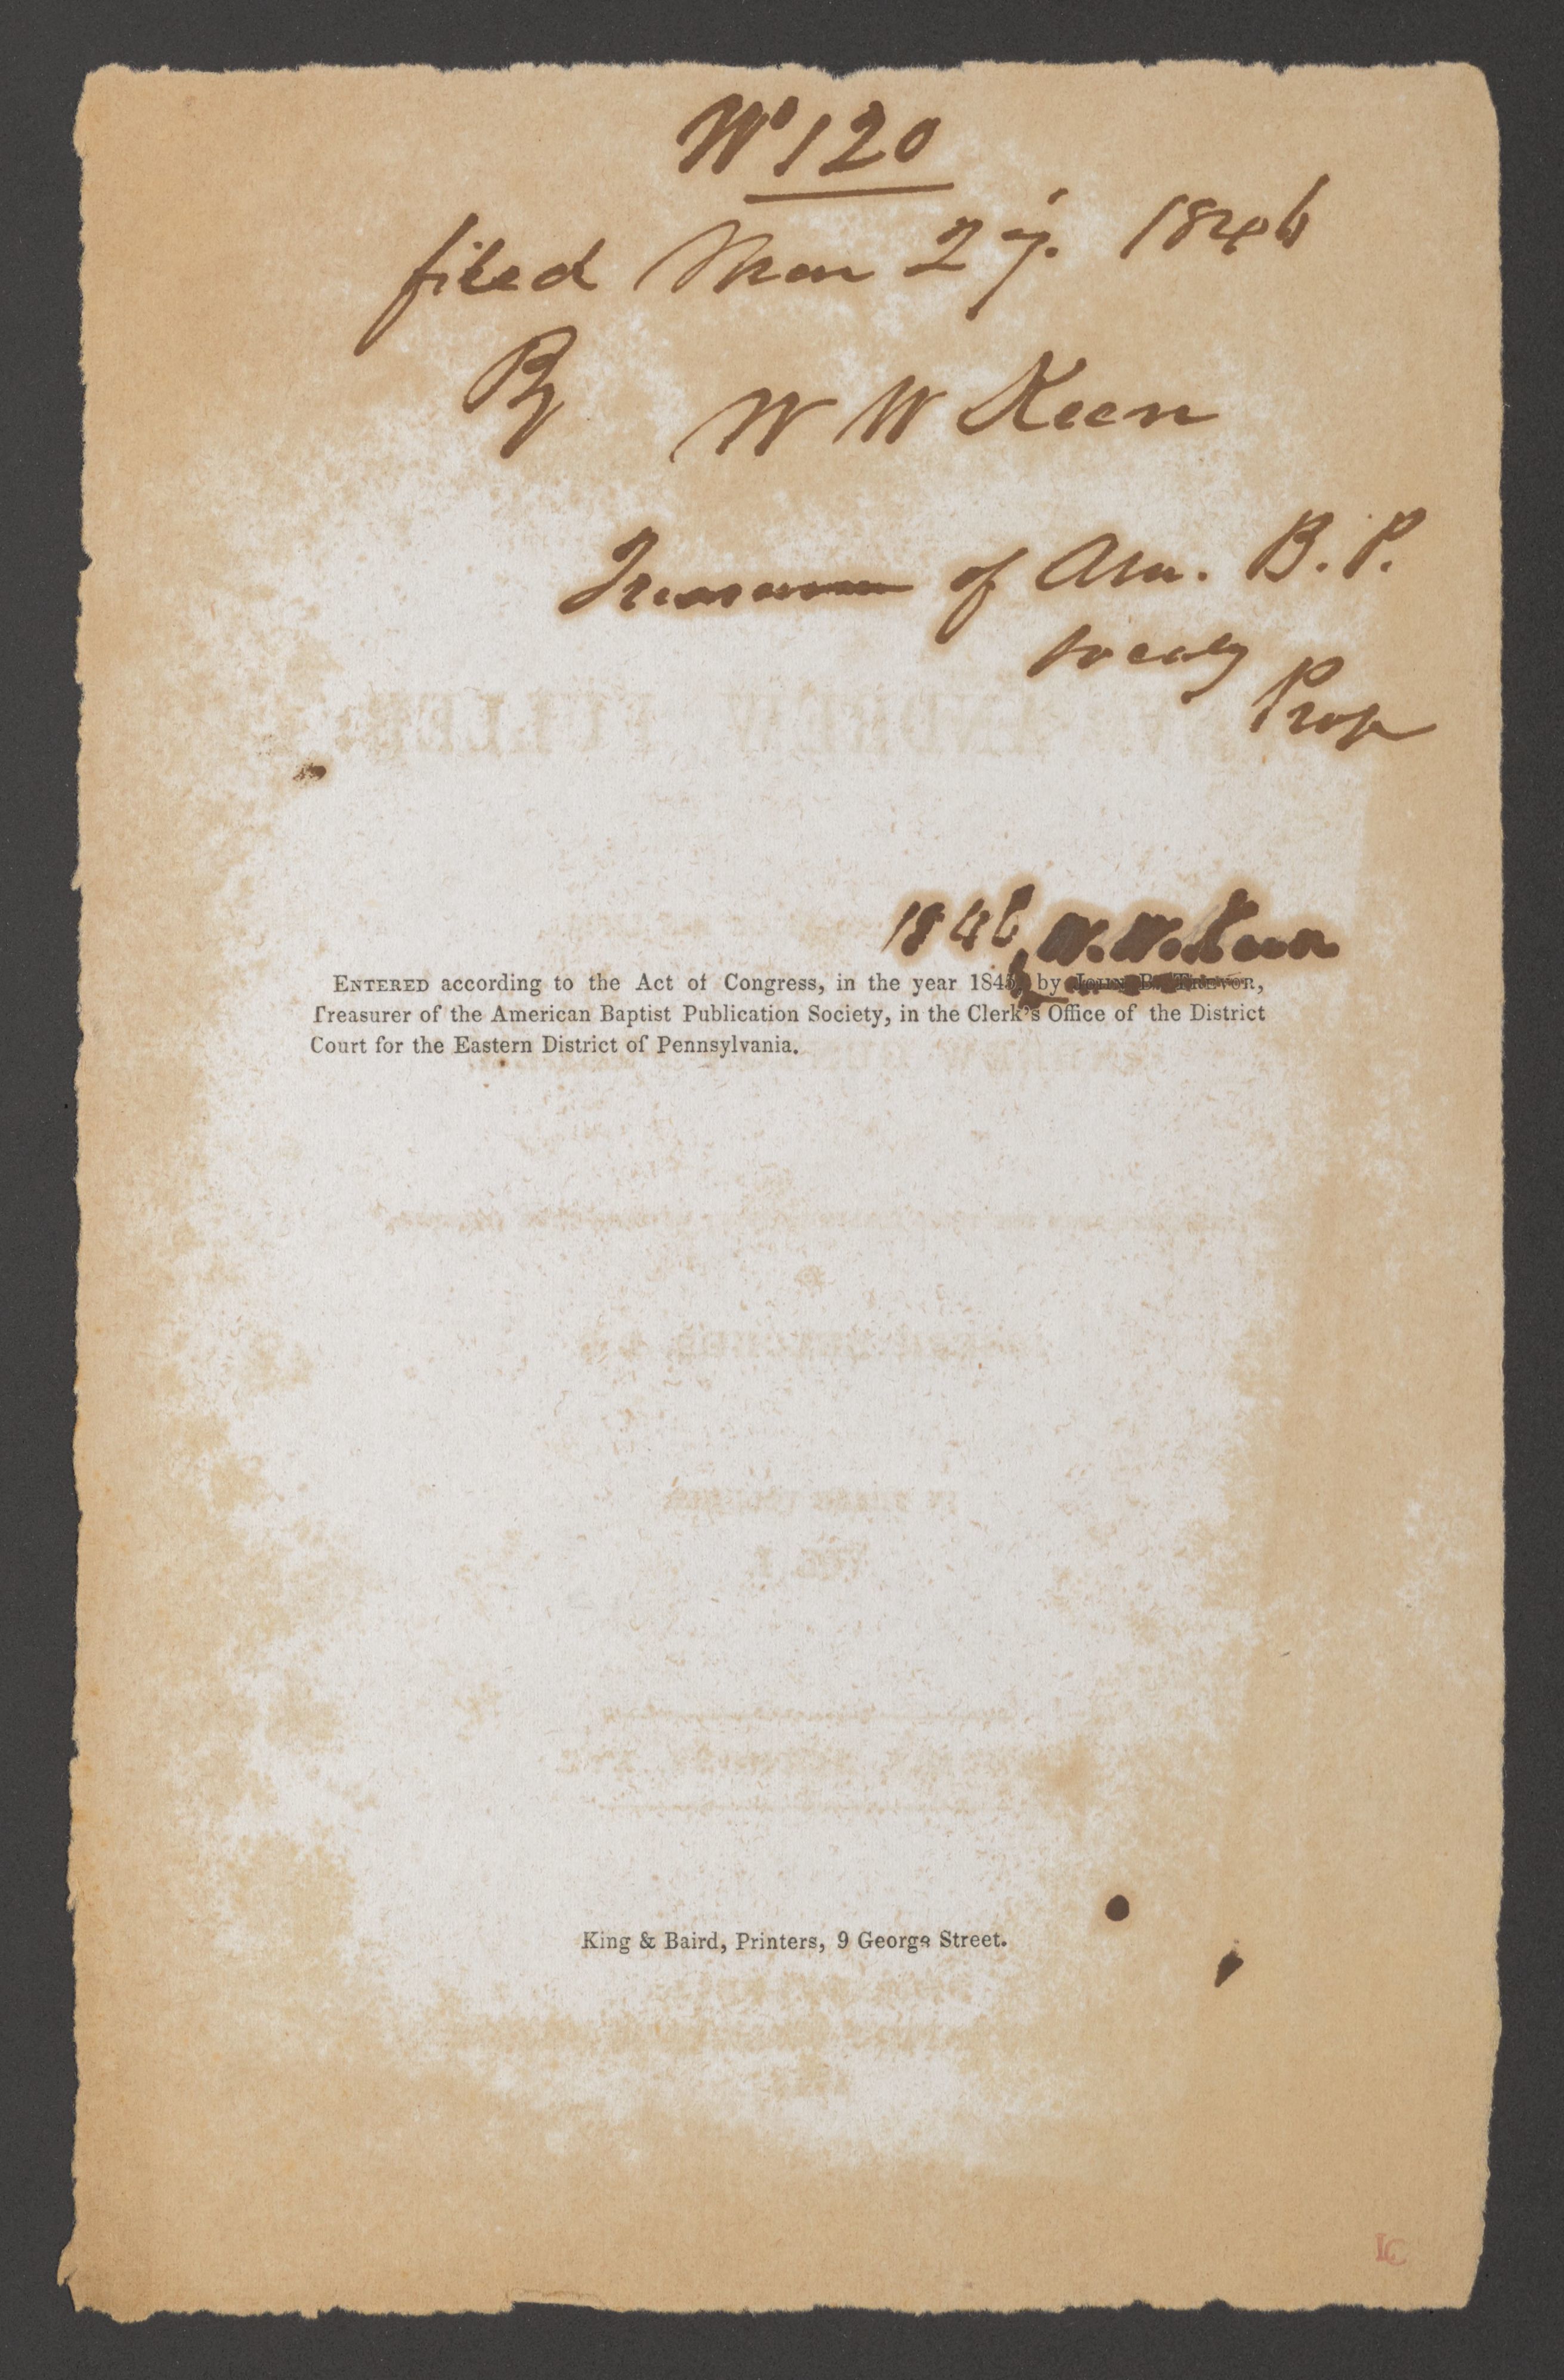 No 120
filed Mar 27. 1846
By W W Keen
Treasurer of Am. B. P.
Society
Prop
1846, W. W. Keen
ENTERED according to the Act of Congress, in the year 1845, by JOHN B. TREVOR,
Treasurer of the American Baptist Publication Society, in the Clerk's Office of the District
Court for the Eastern District of Pennsylvania.
King & Baird, Printers, 9 George Street.
LC